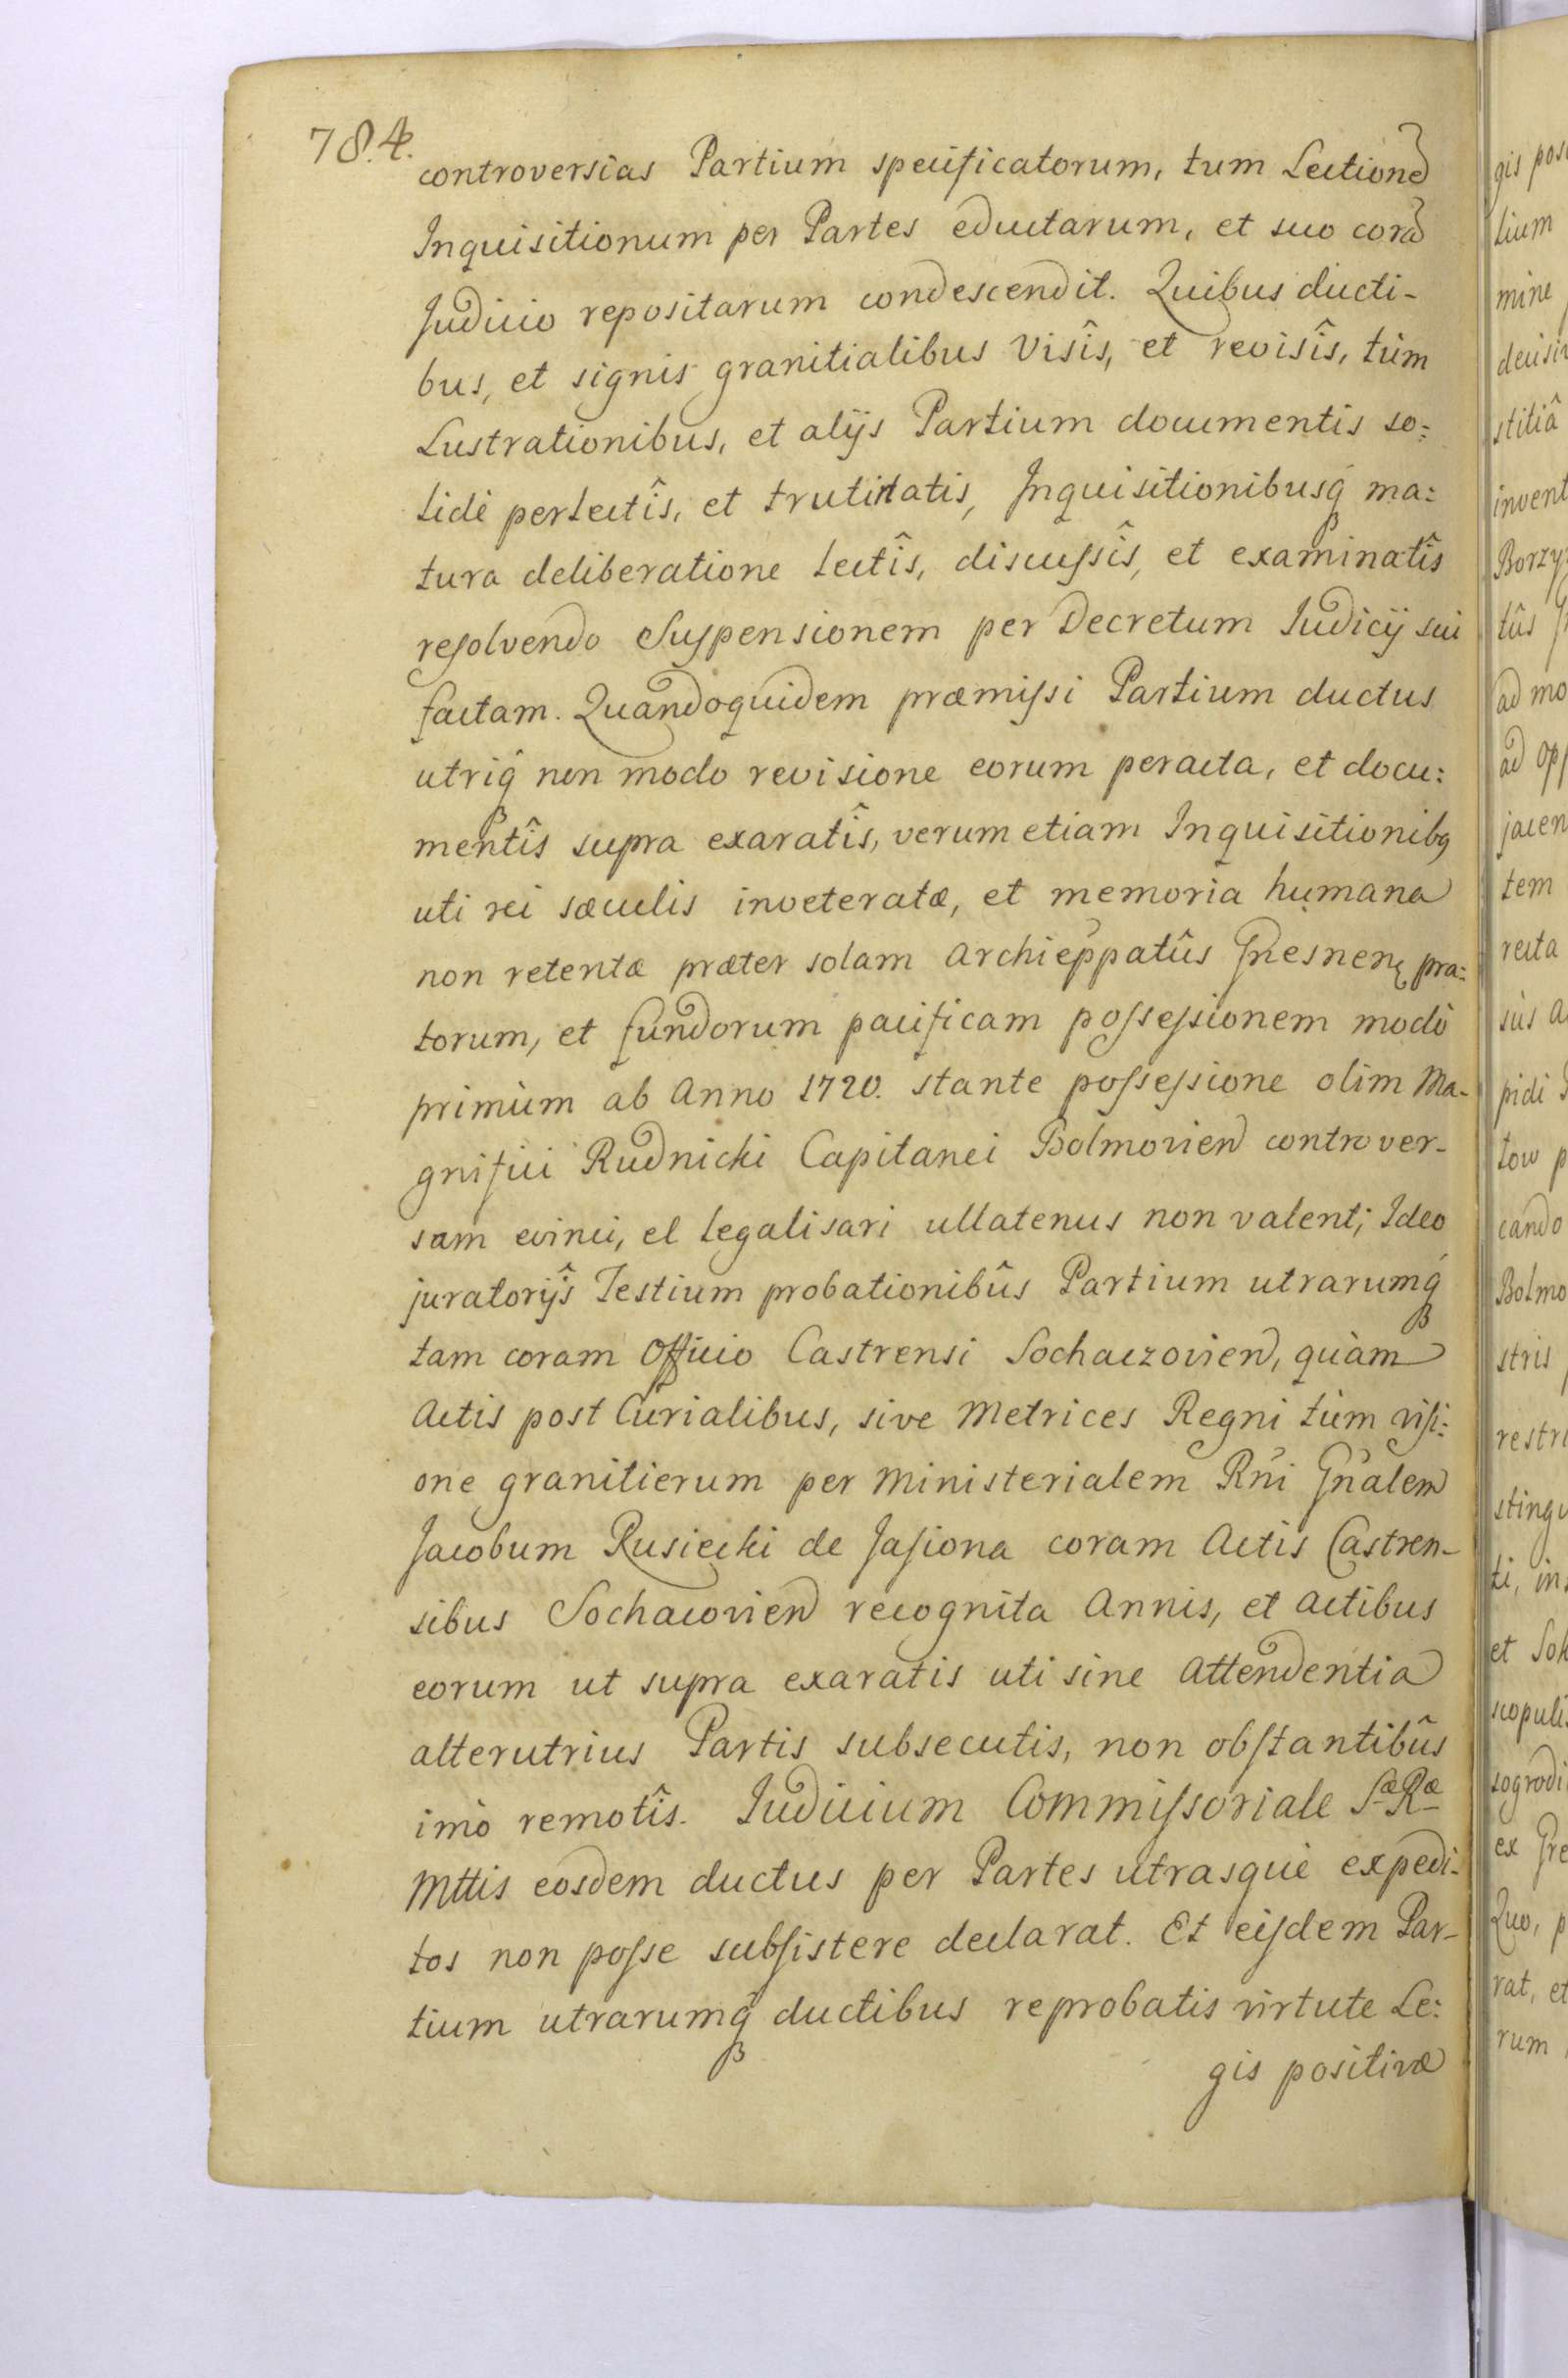 784.
controversias Partium specificatorum, tum Lectione
Inquisitionum per Partes eductarum, et suo corã
Judicio repositarum condescendit. Quibus ducti-
bus, et signis granitialibus visîs, et revisîs, tùm
Lustrationibus, et alijs Partium documentis so:
lidè perlectîs, et trutinatis, Inquisitionibusq́ ma:
tura deliberatione lectîs, discussîs, et examinatîs
resolvendo Suspensionem per Decretum Judicij sui
factam. Quandoquidem præmissi Partium ductus
utriq́ non modo revisione eorum peracta, et docu:
mentîs supra exaratîs, verum etiam Inquisitionibꝯ
uti rei sæculis inveteratæ, et memoria humana
non retentæ præter solam Archieppatûs Gnesnen̨ pra:
torum, et fundorum pacificam possessionem modò
primùm ab Anno 1720. stante possessione olim Ma-
gnifici Rudnicki Capitanei Bolmovien controver-
sam evinci, el legalisari ullatenus non valent; Ideo
juratorijs̑ Testium probationibûs Partium utrarumq́
tam coram Officio Castrensi Sochaczovien, quàm
Actis post Curialibus, sive Metrices Regni tùm visi:
one granitierum per Ministerialem Rñi Gñalem
Jacobum Rusiecki de Jasiona coram Actis Castren-
sibus Sochacovien recognita Annis, et Actibus
eorum ut supra exaratis uti sine Attendentia
alterutrius Partis subsecutis, non obstantibûs
imò remotîs. Judicium Commissoriale Sæ Ræ
Mttis eosdem ductus per Partes utrasque expedi-
tos non posse subsistere declarat. Et eisdem Par-
tium utrarumq́ ductibus reprobatis virtute Le:
gis positivæ
gis pos
tium
mine
decisi
stitiâ
invent
Borzy
tûs
ad mo
ad op
jacen
tem
recta
sùs a
pidi
tow p
cando
Bolmo
stris
restri
stingu
ti, in
et Sok
scopuli
sogrodi
ex Gre
Quo, p
rat, et
rum